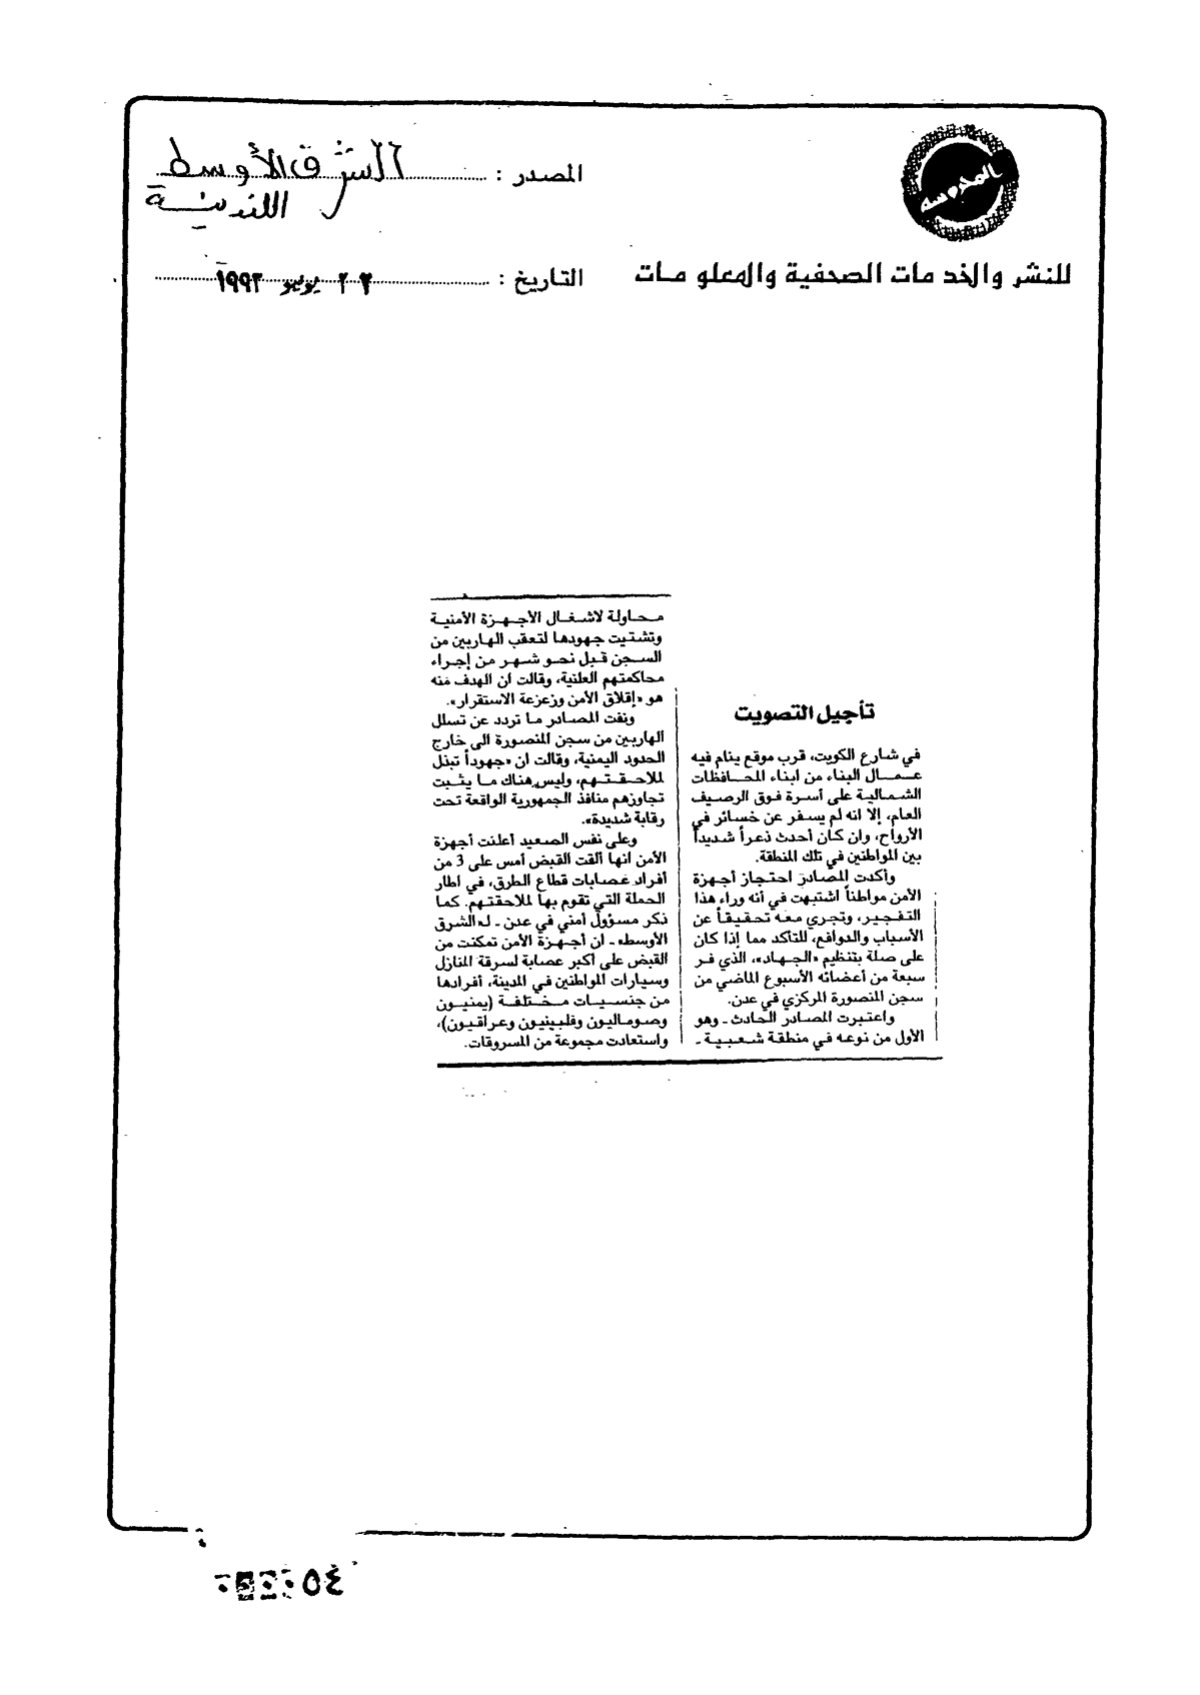 المحروسة
للنشر والخدمات الصحفية والمعلومات
المصدر : الشرق الأوسط
اللندنية
التاريخ : ٢٢ يوليو ١٩٩٣
تأجيل التصويت
في شارع الكويت، قرب موقع ينام فيه
عمال البناء من ابناء المحافظات
الشمالية على أسرة فوق الرصيف
العام، إلا انه لم يسفر عن خسائر في
الأرواح، وان كان أحدث ذعراً شديداً
بين المواطنين في تلك المنطقة.
وأكدت المصادر احتجاز أجهزة
الأمن مواطناً اشتبهت في أنه وراء هذا
التفجير، وتجري معه تحقيقاً عن
الأسباب والدوافع، للتأكد مما إذا كان
على صلة بتنظيم «الجهاد»، الذي فر
سبعة من أعضائه الأسبوع الماضي من
سجن المنصورة المركزي في عدن.
واعتبرت المصادر الحادث - وهو
الأول من نوعه في منطقة شعبية -
محاولة لاشغال الأجهزة الأمنية
وتشتيت جهودها لتعقب الهاربين من
السجن قبل نحو شهر من إجراء
محاكمتهم العلنية، وقالت ان الهدف منه
هو «إقلاق الأمن وزعزعة الاستقرار».
ونفت المصادر ما تردد عن تسلل
الهاربين من سجن المنصورة الى خارج
الحدود اليمنية، وقالت ان «جهوداً تبذل
لملاحقتهم، وليس هناك ما يثبت
تجاوزهم منافذ الجمهورية الواقعة تحت
رقابة شديدة».
وعلى نفس الصعيد أعلنت أجهزة
الأمن انها ألقت القبض أمس على 3 من
أفراد عصابات قطاع الطرق، في اطار
الحملة التي تقوم بها لملاحقتهم. كما
ذكر مسؤول أمني في عدن - لـ«الشرق
الأوسط» - ان أجهزة الأمن تمكنت من
القبض على أكبر عصابة لسرقة المنازل
وسيارات المواطنين في المدينة، أفرادها
من جنسيات مختلفة (يمنيون
وصوماليون وفلبينيون وعراقيون)،
واستعادت مجموعة من المسروقات.
٥٤